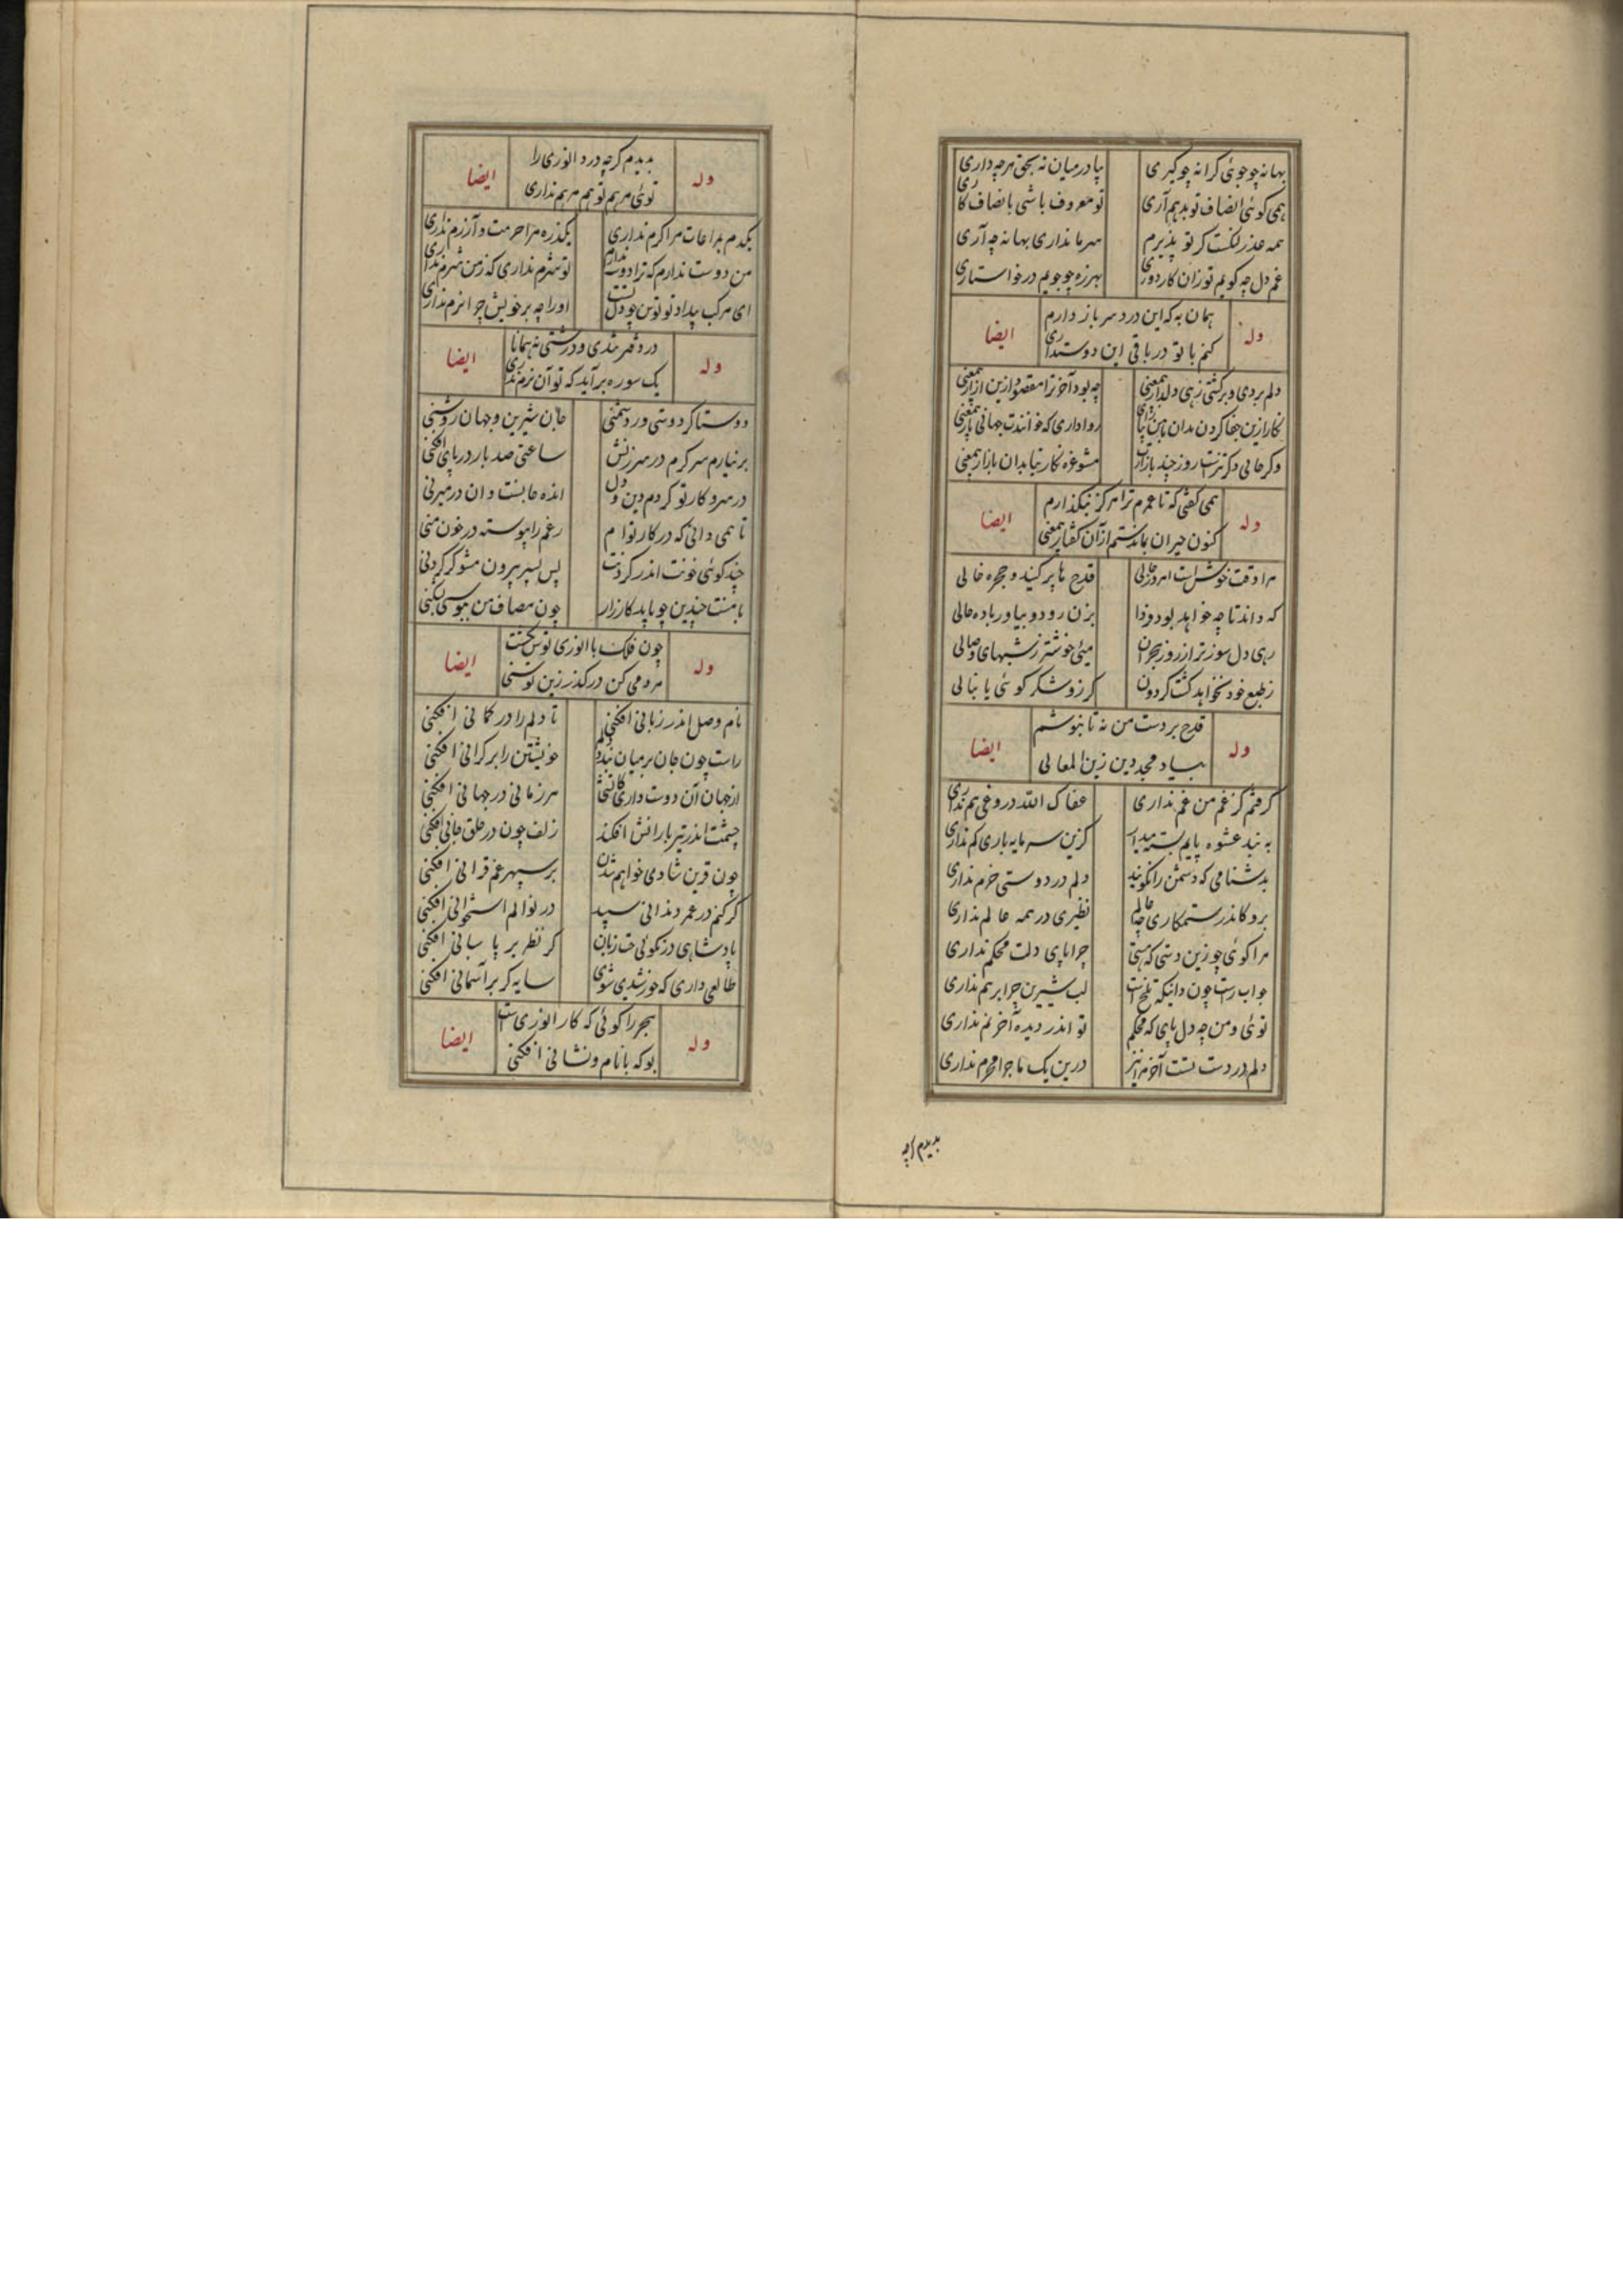 بهانه چو جوئی کرانه چو کیری
پا در میان نه بحق هرچه داری
همی کوئی انصاف تو بدهم آری
تو معروف باشی بانصاف کاری
همه عذر لنکست کر تو پذیرم
سر ما نداری بهانه چه آری
غم دل چه کویم تو زان کار دوری
بهرزه چو جویم در خواستاری
وله
همان به که این درد سر باز دارم
کنم با تو در باقی این دوستداری
ایضا
دلم بردی و برکشتی زهی دلدار بیمعنی
چه بود آخر ترا مقصود ازین آزار بیمعنی
روا داری که خوانندت جهانی یار بیمعنی
مشو غره نکارینا بدان بازار بیمعنی
وله
همی کفتی که تا عمرم ترا هرکز نبکذارم
کنون حیران بماندستم از آن کفتار بیمعنی
ایضا
مرا وقت خوش است امروز حالی
قدح ها پر کنید و حجره خالی
که داند تا چه خواهد بود فردا
بزن رود و بیاور باده حالی
رهی دل سوزتر از روز هجران
میئی خوشتر ز شبهای وصالی
ز طبع خود نخواهد کشت کردون
کرزو شکر کوئی یا بنالی
وله
قدح بر دست من نه تا بنوشم
بیاد مجد دین زین المعالی
ایضا
کرفتم کز غم من غم نداری
عفاک الله دروغی هم نداری
به بند عشوه پایم بسته میدار
کزین سرمایه باری کم نداری
بدشنامی که دشمن را نکویند
دلم در دوستی خرم نداری
برو کاندر ستمکاری چه عالم
نظیری در همه عالم نداری
مرا کوئی چو زین دستی که هستی
چرا پای دلت محکم نداری
جواب راست چون دانیکه تلخ است
لب شیرین چرا برهم نداری
توئی و من چه دل پای که محکم
تو اندر دیده آخر نم نداری
دلم در دست تست آخر مرا نیز
درین یک ماجرا محرم نداری
بدیدم کرچه
وله
بدیدم کرچه درد انوری را
توئی مرهم تو هم مرهم نداری
ایضا
یکدم بمراعات مرا کرم نداری
یکذره مرا حرمت و آزرم نداری
من دوست ندارم که ترا دوست ندارم
تو شرم نداری که ز من شرم نداری
ای مرکب بیداد تو توسن چو دل تست
او را چه بر خویش چرا نرم نداری
وله
در دفتر تندی و درشتی نه همانا
یک سوره برآید که تو آن نرم نداری
ایضا
دوستا کر دوستی ور دشمنی
جان شیرین و جهان روشنی
برنیارم سر کرم در سرزنش
ساعتی صد بار در پای افکنی
در سر و کار تو کردم دین و دل
انده جانست وان در میزنی
تا همی دانی که در کار توام
رغم را پیوسته در خون منی
چند کوئی خونت اندر کردنت
پس بسر بیرون مشو کر کردنی
با منت چندین چو باید کارزار
چون مصاف من ببوسی بشکنی
وله
چون فلک با انوری توسن نکشت
مردمی کن در کذر زین توسنی
ایضا
نام وصل اندر زبانی افکنی
تا دلم را در کمانی افکنی
راست چون جان بر میان بندد دلم
خویشتن را بر کرانی افکنی
از جهان آن دوست داری کآتشی
هر زمانی در جهانی افکنی
چشمت اندر تیر بارانش افکند
زلف چون در حلق جانی افکنی
چون قرین شادی خواهم شدن
بر سپهر غم قرانی افکنی
کر کنم در عمر دندانی سپید
در نوالم استخوانی افکنی
پادشاهی در نکوئی چت زیان
کر نظر بر پاسبانی افکنی
طالعی داری که خورشیدی شوی
سایه کر بر آسمانی افکنی
وله
هجر را کوئی که کار انوری است
بو که بانام و نشانی افکنی
ایضا